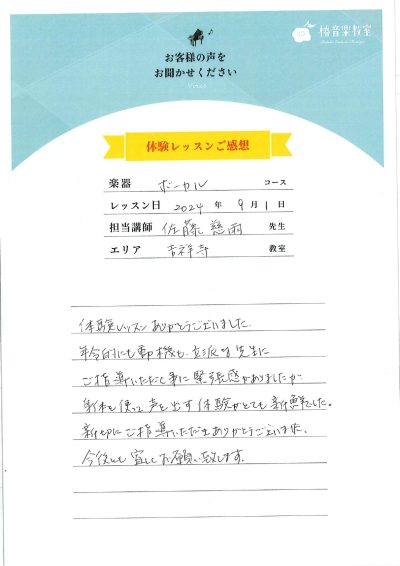 椿音楽教室
お客様の声を
お聞かせください
Voice
体験レッスンご感想
楽器 ボーカル コース
レッスン日 2024 年 9 月 1 日
担当講師 佐藤 慈雨 先生
エリア 吉祥寺 教室
体験レッスンありがとうございました。
年令的にも動機も立派な先生に
ご指導いただく事に緊張感がありましたが
身体を使って声を出す体験がとても新鮮でした。
親切にご指導いただきありがとうございました。
今後とも宜しくお願い致します。